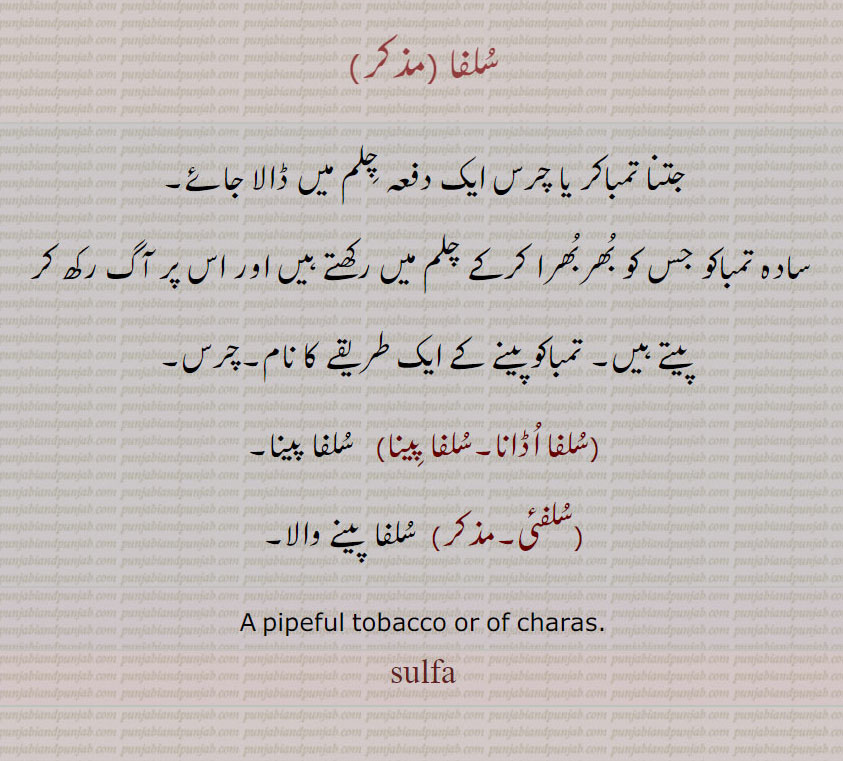 سُلفا (مذکر)
جتنا تمباکر یا چرس ایک دفعہ چِلم میں ڈالا جائے۔
سادہ تمباکو جس کو بُھربُھرا کرکے چلم میں رکھتے ہیں اور اس پر آگ رکھ کر
پیتے ہیں۔ تمباکو پینے کے ایک طریقے کا نام۔چرس۔
(سُلفا اُڈانا۔سُلفا پِینا) سُلفا پینا۔
(سُلفئی۔مذکر) سُلفا پینے والا۔
A pipeful tobacco or of charas.
sulfa
punjabiandpunjab.com